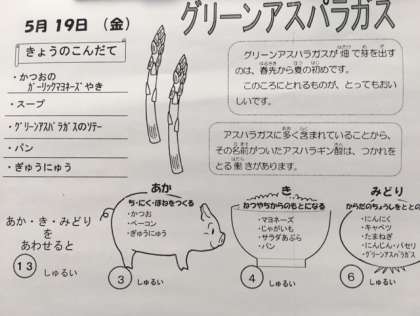 5月19日（金）
グリーンアスパラガス
きょうのこんだて
・かつおの
ガーリックマヨネーズやき
・スープ
・グリーンアスパラガスのソテー
・パン
・ぎゅうにゅう
グリーンアスパラガスが畑で芽を出す
のは、春先から夏の初めです。
このころにとれるものが、とってもおい
しいです。
アスパラガスに多く含まれていることから、
その名前がついたアスパラギン酸は、つかれを
とる働きがあります。
あか・き・みどり
を
あわせると
13 しゅるい
あか
ち・にく・ほねをつくる
・かつお
・ベーコン
・ぎゅうにゅう
3 しゅるい
き
ねつやちからのもとになる
・マヨネーズ
・じゃがいも
・サラダあぶら
・パン
4 しゅるい
みどり
からだのちょうしをととの
・にんにく
・キャベツ
・たまねぎ
・にんじん・パセリ
・グリーンアスパラガス
6 しゅるい